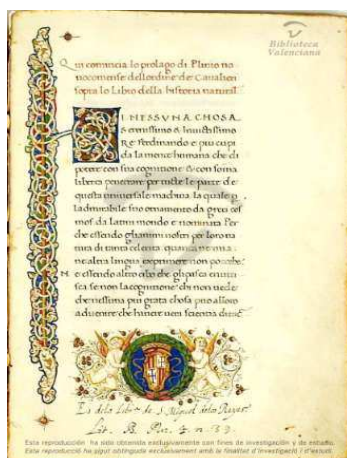 Biblioteca
Valenciana
Qui comincia lo prolago di Plinio no
nocomense dell ordine de Cavalieri
sopra lo Libro della historia natural
DI NESSUNA CHOSA
Serenissimo & Invictissimo
Re Ferdinando e piu cupi
da la mente humana che di
potere con sua cognitione & con somma
liberta penetrare per tucte le parte de
questa universale machina la quale p
la admirabile suo ornamento da greci cos
mos da latini mondo e nominata Per
che essendo gli animi nostri per loro na
tura di tanta celerita quanta ne niu
ne altra lingua exprimere non potrebbe
e essendo altro cibo che gli pasca
se non la cognitione chi non vede
che nessuna piu grata chosa puo alloro
advenire che havere vera scientia
Es de la Libr.ª de S. Miguel de los Reyes
Esta reproducción ha sido obtenida exclusivamente con fines de investigación y de estudio.
Esta reproducció ha sigut obtinguda exclusivament amb la finalitat d'investigació i d'estudi.